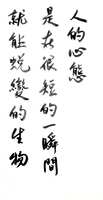 人的心態
是在很短的一瞬間
就能蛻變的生物